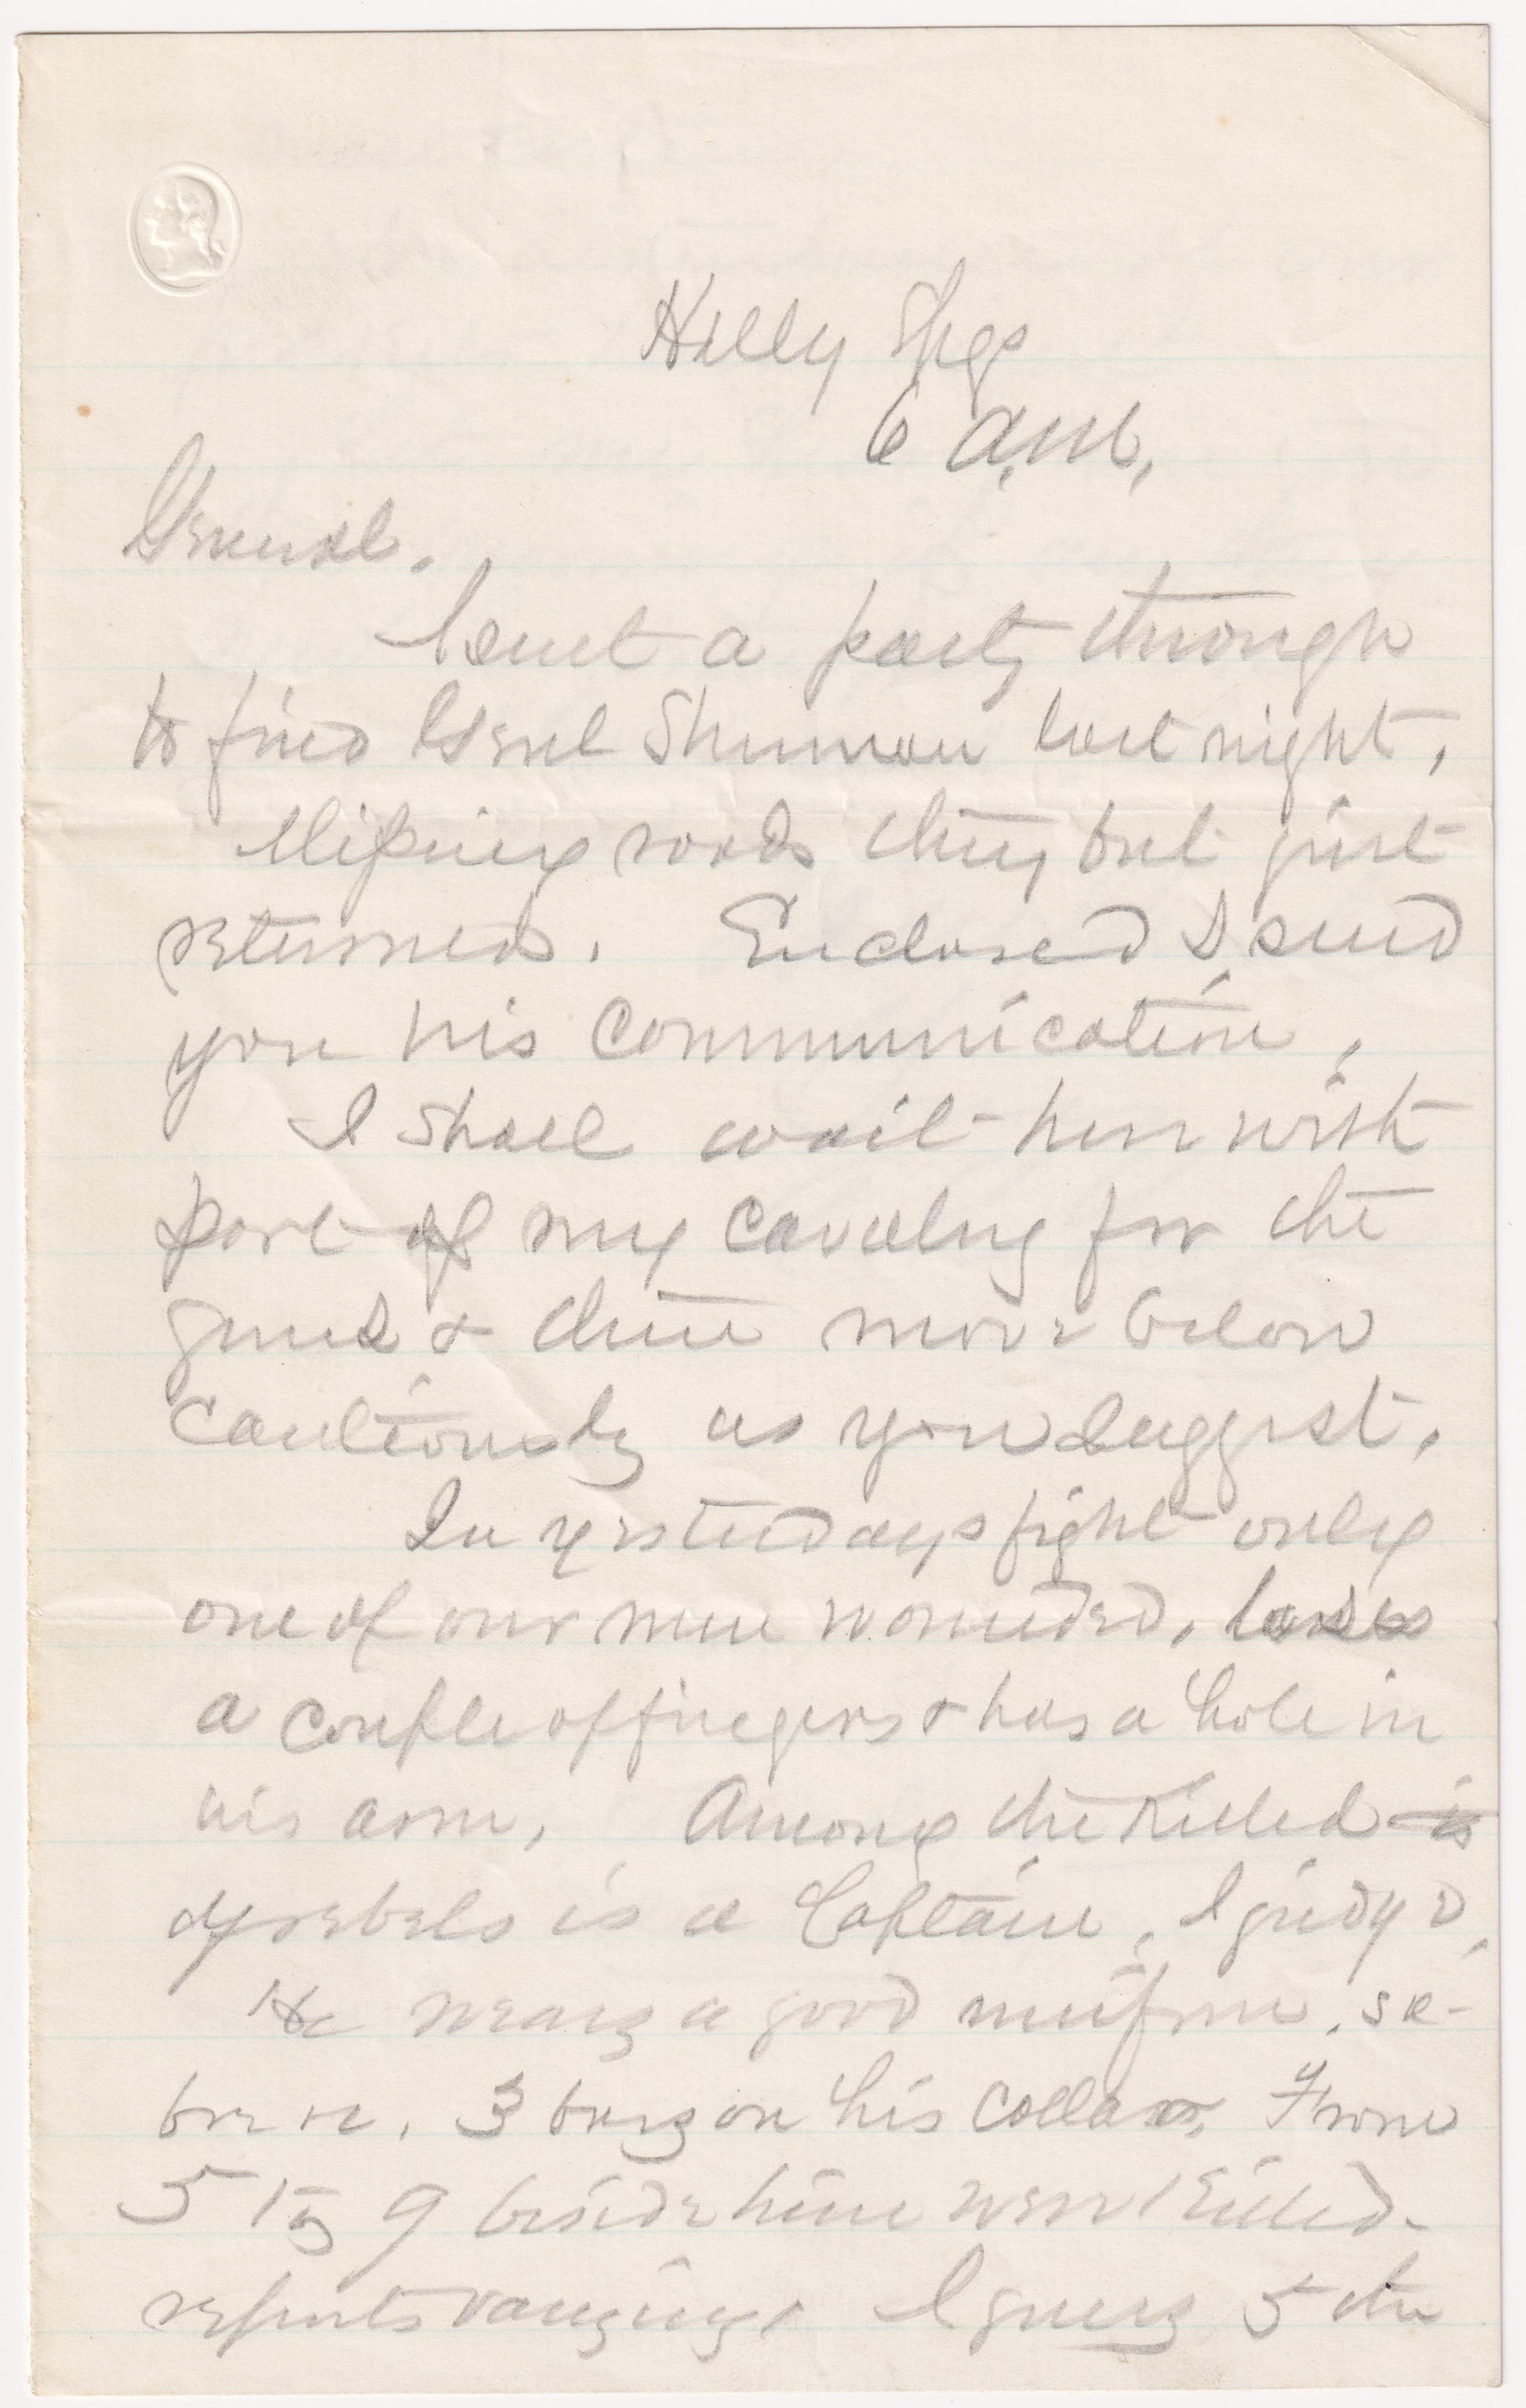 Holly Spgs
6 a.m.
General.
I sent a party through
to find Genl Sherman last night.
Missing roads they but just
returned. Enclosed I send
you his communication.
I shall wait here with
part of my cavalry for the
guns & then move below
cautiously as you suggest.
In yesterdays fight only
one of our men wounded, loses
a couple of fingers & has a hole in
his arm. Among the killed is
of rebels is a Captain, I judge.
He wears a good uniform, sa-
bre &c. 3 bars on his collar. From
5 to 9 beside him were killed.
reports varying. I guess 5 the